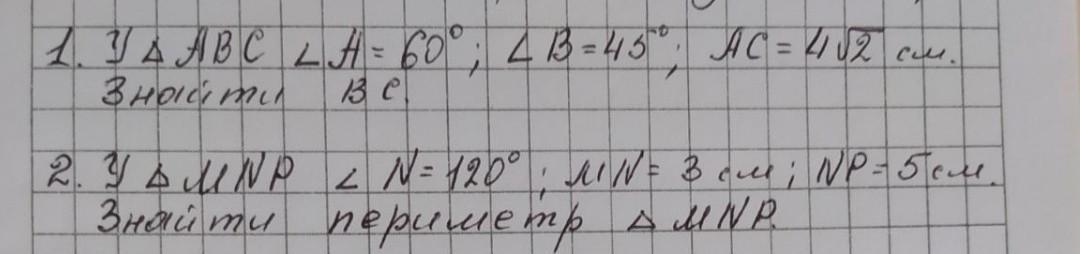 1. У △ ABC ∠ A = 60°; ∠ B = 45°; AC = 4√2 см.
Знайти BC.
2. У △ MNP ∠ N = 120°; MN = 3 см; NP = 5 см.
Знайти периметр △ MNP.